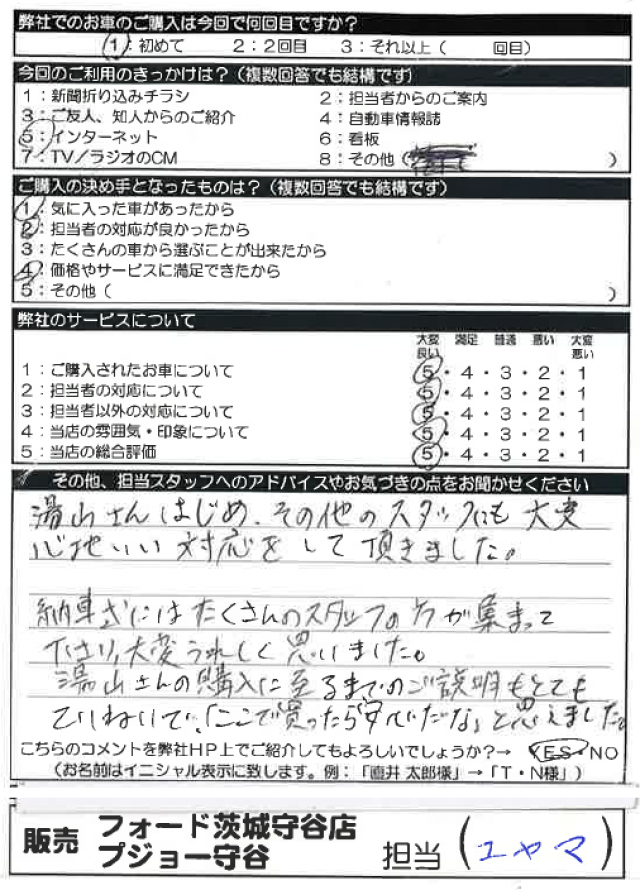 弊社でのお車のご購入は今回で何回目ですか？
1：初めて 2：2回目 3：それ以上（ 回目）
今回のご利用のきっかけは？（複数回答でも結構です）
1：新聞折り込みチラシ 2：担当者からのご案内
3：ご友人、知人からのご紹介 4：自動車情報誌
5：インターネット 6：看板
7：TV／ラジオのCM 8：その他（ ）
ご購入の決め手となったものは？（複数回答でも結構です）
1：気に入った車があったから
2：担当者の対応が良かったから
3：たくさんの車から選ぶことが出来たから
4：価格やサービスに満足できたから
5：その他（ ）
弊社のサービスについて
大変良い 満足 普通 悪い 大変悪い
1：ご購入されたお車について 5・4・3・2・1
2：担当者の対応について 5・4・3・2・1
3：担当者以外の対応について 5・4・3・2・1
4：当店の雰囲気・印象について 5・4・3・2・1
5：当店の総合評価 5・4・3・2・1
その他、担当スタッフへのアドバイスやお気づきの点をお聞かせください
湯山さんはじめ、その他のスタッフにも大変
心地いい対応をして頂きました。
納車式にはたくさんのスタッフの方が集まって
下さり、大変うれしく思いました。
湯山さんの購入に至るまでのご説明もとても
ていねいで、「ここで買ったら安心だな」と思えました。
こちらのコメントを弊社HP上でご紹介してもよろしいでしょうか？→ YES・NO
（お名前はイニシャル表示に致します。例：「直井 太郎様」→「T・N様」）
販売 フォード茨城守谷店
プジョー守谷 担当（ユヤマ）